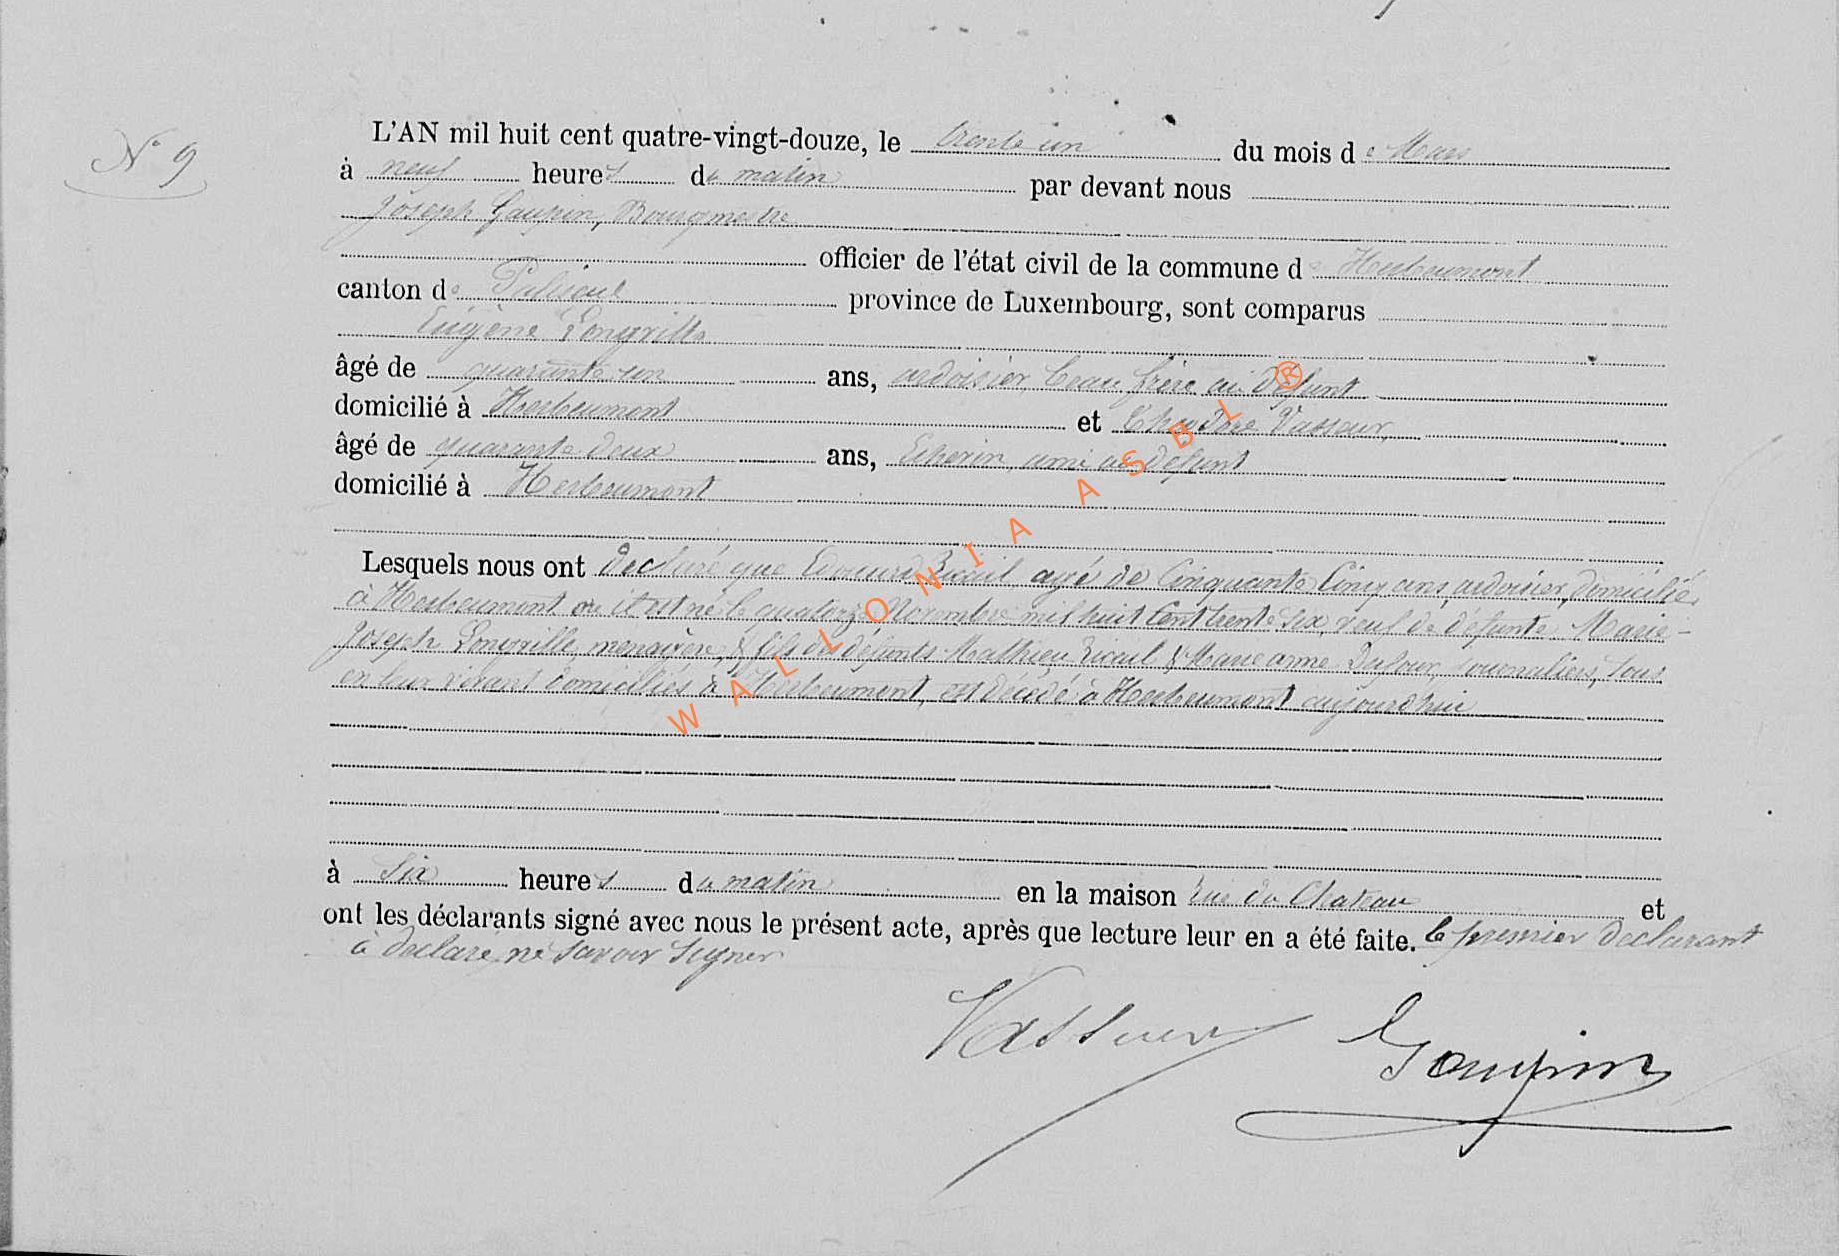 N° 9
L'AN mil huit cent quatre-vingt-douze, le trente un du mois de Mars
à neuf heures du matin par devant nous
Joseph Goupin, Bourgmestre
officier de l'état civil de la commune de Herbeumont
canton de Paliseul province de Luxembourg, sont comparus
Eugène Longville
âgé de quarante un ans, ardoisier, beau frère au défunt
domicilié à Herbeumont et Théodore Vasseur,
âgé de quarante deux ans, ami au défunt
domicilié à Herbeumont
Lesquels nous ont declaré que Edouard âgé de Cinquante Cinq ans, ardoisier, domicilié
à Herbeumont où il est né le quatorze Novembre mil huit Cent trente six, veuf de défunte Marie-
Joseph Longville, menagère, & fils des défunts Mathieu & Marie anne Dufour, journaliers, tous
en leur vivant domiciliés à Herbeumont, est décédé à Herbeumont aujourdhui
à Six heures du matin en la maison rue du Chateau et
ont les déclarants signé avec nous le présent acte, après que lecture leur en a été faite. le premier declarant
à declaré ne savoir signer
Vasseur Goupin
WALLONIA ASBL ®